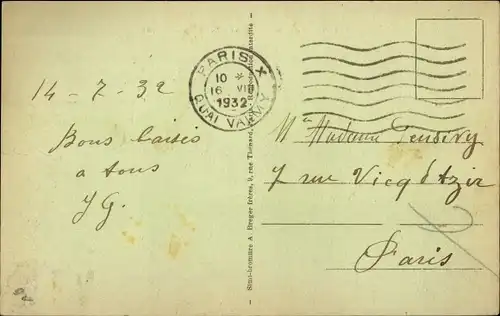 14-7-32
Bons baisers
a tous
JG.
PARIS X
10 *
16 VII
1932
QUAI VALMY
Simi-bromure A. Breger frères, 9, rue Thénard,
Mr Madame
7 rue Vicq d'Azir
Paris